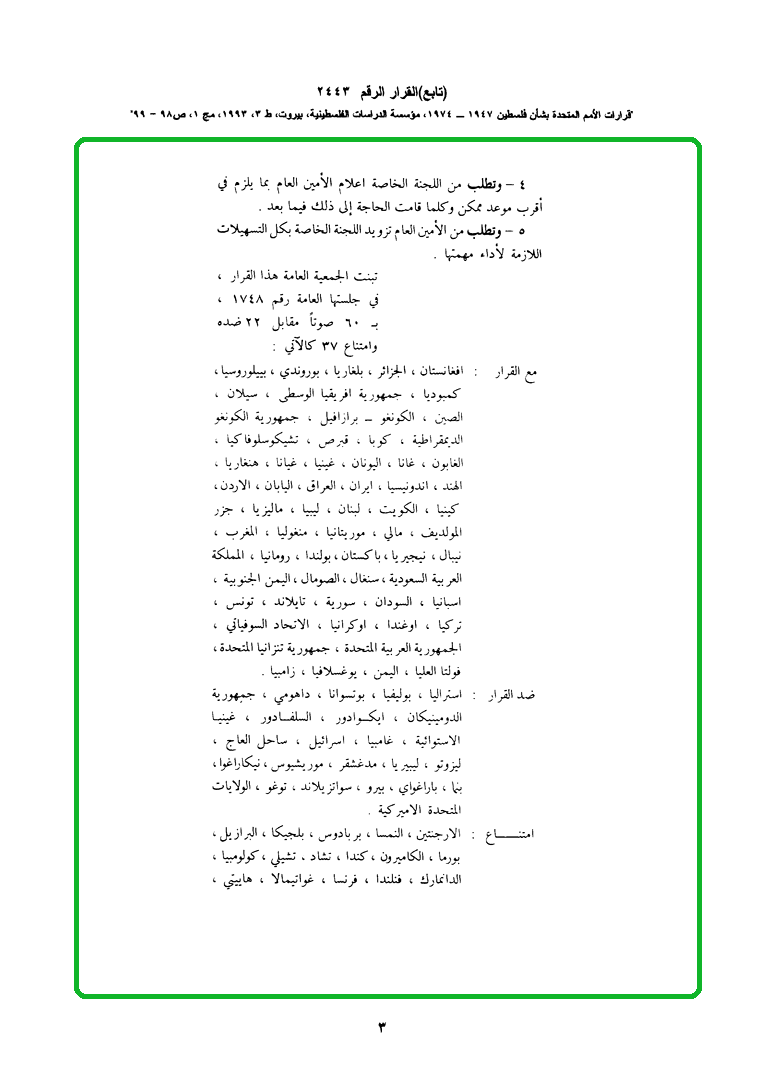 (تابع)القرار الرقم ٢٤٤٣
"قرارات الأمم المتحدة بشأن فلسطين ١٩٤٧ ــ ١٩٧٤، مؤسسة الدراسات الفلسطينية، بيروت، ط ٣، ١٩٩٣، مج ١، ص٩٨ - ٩٩"
٤ – وتطلب من اللجنة الخاصة اعلام الأمين العام بما يلزم في
أقرب موعد ممكن وكلما قامت الحاجة إلى ذلك فيما بعد .
٥ – وتطلب من الأمين العام تزويد اللجنة الخاصة بكل التسهيلات
اللازمة لأداء مهمتها .
تبنت الجمعية العامة هذا القرار ،
في جلستها العامة رقم ١٧٤٨ ،
بـ ٦٠ صوتاً مقابل ٢٢ ضده
وامتناع ٣٧ كالآتي :
مع القرار : افغانستان ، الجزائر ، بلغاريا ، بوروندي ، بييلوروسيا،
كمبوديا ، جمهورية افريقيا الوسطى ، سيلان ،
الصين ، الكونغو ــ برازافيل ، جمهورية الكونغو
الديمقراطية ، كوبا ، قبرص ، تشيكوسلوفاكيا ،
الغابون ، غانا ، اليونان ، غينيا ، غيانا ، هنغاريا ،
الهند ، اندونيسيا ، ايران ، العراق ، اليابان ، الاردن،
كينيا ، الكويت ، لبنان ، ليبيا ، ماليزيا ، جزر
المولديف ، مالي ، موريتانيا ، منغوليا ، المغرب ،
نيبال ، نيجيريا ، باكستان، بولندا ، رومانيا ، المملكة
العربية السعودية ، سنغال ، الصومال ، اليمن الجنوبية ،
اسبانيا ، السودان ، سورية ، تايلاند ، تونس ،
تركيا ، اوغندا ، اوكرانيا ، الاتحاد السوفياتي ،
الجمهورية العربية المتحدة ، جمهورية تنزانيا المتحدة،
فولتا العليا ، اليمن ، يوغسلافيا ، زامبيا .
ضد القرار : استراليا ، بوليفيا ، بوتسوانا ، داهومي ، جمهورية
الدومينيكان ، ايكـوادور ، السلفـادور ، غينيـا
الاستوائية ، غامبيا ، اسرائيل ، ساحل العاج ،
ليزوتو ، ليبيريا ، مدغشقر ، موريشيوس ، نيكاراغوا،
بنما ، باراغواي ، بيرو ، سوازيلاند ، توغو ، الولايات
المتحدة الاميركية .
امتنـــــاع : الارجنتين ، النمسا ، بربادوس ، بلجيكا ، البرازيل ،
بورما ، الكاميرون ، كندا ، تشاد ، تشيلي ، كولومبيا ،
الدانمارك ، فنلندا ، فرنسا ، غواتيمالا ، هاييتي ،
٣